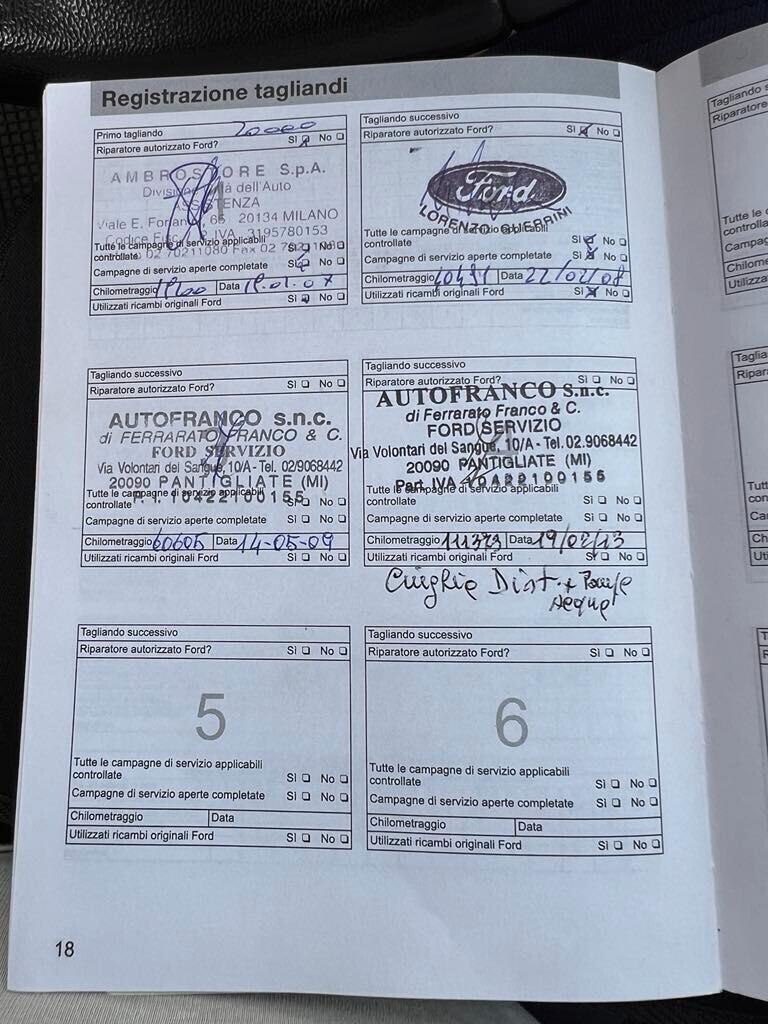 Registrazione tagliandi
Primo tagliando 20000
Riparatore autorizzato Ford? Sì No
AMBROSTORE S.p.A.
Divisione dell'Auto
ASSISTENZA
Viale E. 65 20134 MILANO
Codice Fisc. IVA 3195780153
Tutte le campagne di servizio applicabili
02 70211080 Fax 02
controllate Sì No
Campagne di servizio aperte completate Sì No
Chilometraggio Data 19.01.07
Utilizzati ricambi originali Ford Sì No
Tagliando successivo
Riparatore autorizzato Ford? Sì No
Ford
LORENZO GUERRINI
Tutte le campagne di servizio applicabili
controllate Sì No
Campagne di servizio aperte completate Sì No
Chilometraggio 40491 Data 22/02/08
Utilizzati ricambi originali Ford Sì No
Tagliando successivo
Riparatore autorizzato Ford? Sì No
AUTOFRANCO s.n.c.
di FERRARATO FRANCO & C.
FORD SERVIZIO
Via Volontari del Sangue, 10/A - Tel. 02/9068442
20090 PANTIGLIATE (MI)
P. I. 10422100155
Tutte le campagne di servizio applicabili
controllate Sì No
Campagne di servizio aperte completate Sì No
Chilometraggio 60605 Data 14-05-09
Utilizzati ricambi originali Ford Sì No
Tagliando successivo
Riparatore autorizzato Ford? Sì No
AUTOFRANCO S.n.c.
di Ferrarato Franco & C.
FORD SERVIZIO
Via Volontari del Sangue, 10/A - Tel. 02.9068442
20090 PANTIGLIATE (MI)
Part. IVA 10422100155
Tutte le campagne di servizio applicabili
controllate Sì No
Campagne di servizio aperte completate Sì No
Chilometraggio 111373 Data 19/02/13
Utilizzati ricambi originali Ford Sì No
Cinghie Dist +
Tagliando successivo
Riparatore autorizzato Ford? Sì No
5
Tutte le campagne di servizio applicabili
controllate Sì No
Campagne di servizio aperte completate Sì No
Chilometraggio Data
Utilizzati ricambi originali Ford Sì No
Tagliando successivo
Riparatore autorizzato Ford? Sì No
6
Tutte le campagne di servizio applicabili
controllate Sì No
Campagne di servizio aperte completate Sì No
Chilometraggio Data
Utilizzati ricambi originali Ford Sì No
18